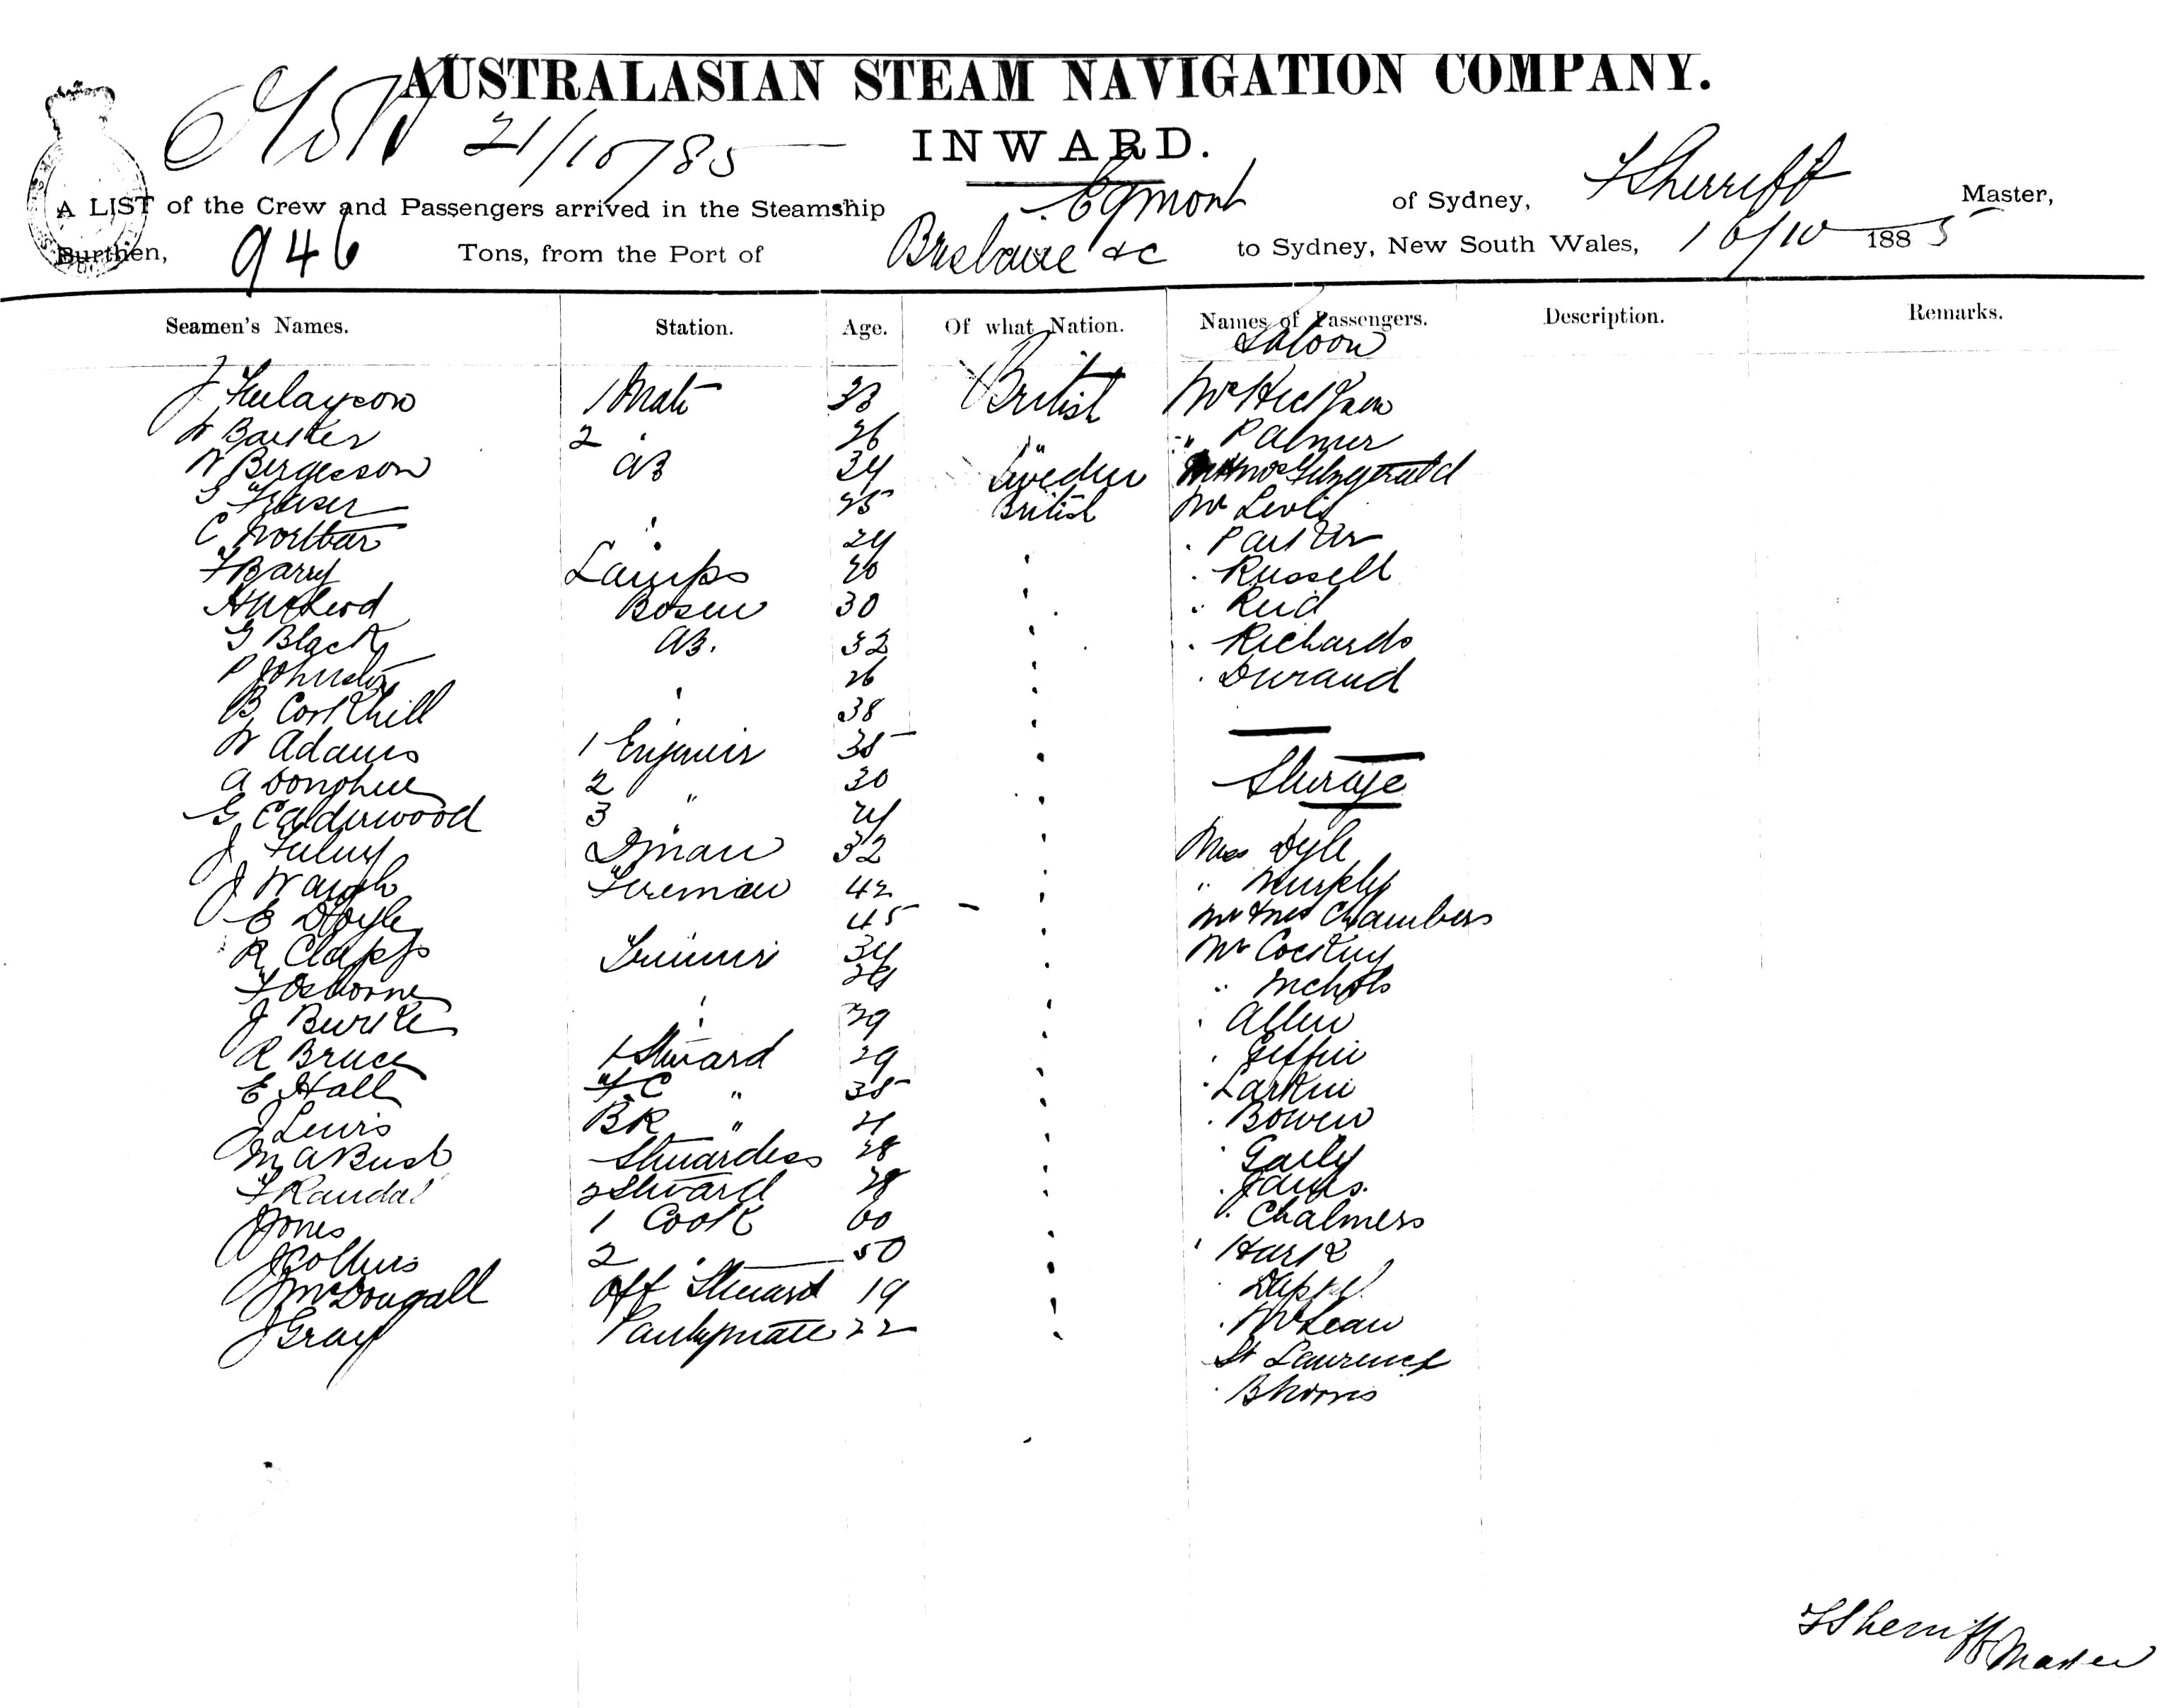 AUSTRALASIAN STEAM NAVIGATION COMPANY.
21/10/85
INWARD.
A LIST of the Crew and Passengers arrived in the Steamship Egmont of Sydney, F Sherriff Master,
Burthen, 946 Tons, from the Port of Brisbane &c to Sydney, New South Wales, 16/10 1885
Seamen's Names. Station. Age. Of what Nation. Names of Passengers. Description. Remarks.
Saloon
J Finlayson 1 Mate 33 British
W Barker 2 " 26 " " Palmer
N Bergesson AB 34 Sweden Fitzgerald
Fraser 25 British Mr Levot
C 24 . Parker
F Barry Lamps 20 . Russell
H McLeod Bosun 30 . Reid
G Black AB. 32 . Richards
P Johnston 26 . Durand
B Corkhill 38
W Adams 1 Engineer 35
A Donohue 2 " 30 Steerage
G Calderwood 3 "
J Dman 32 Miss Dyle
J Waugh Fireman 42 " Murphy
E Doyle 45 Mr & Mrs Chambers
R Clapp Trimmer 34 Mr
F Osborne " Nichols
J Burke 39 . Allen
R Bruce 1 Steward 29 . Giffin
E Hall F.C " 35 . Larkin
J Lewis BK " 21 . Bowen
M A Bush Stewardess 28 .
F Randal 2 Steward 28 . James.
J Jones 1 Cook 60 . Chalmers
J Collins 2 " 50
J McDougall Off Steward 19
J Gray Pantrymate 22 . McLean
St Laurence
F Sherriff Master